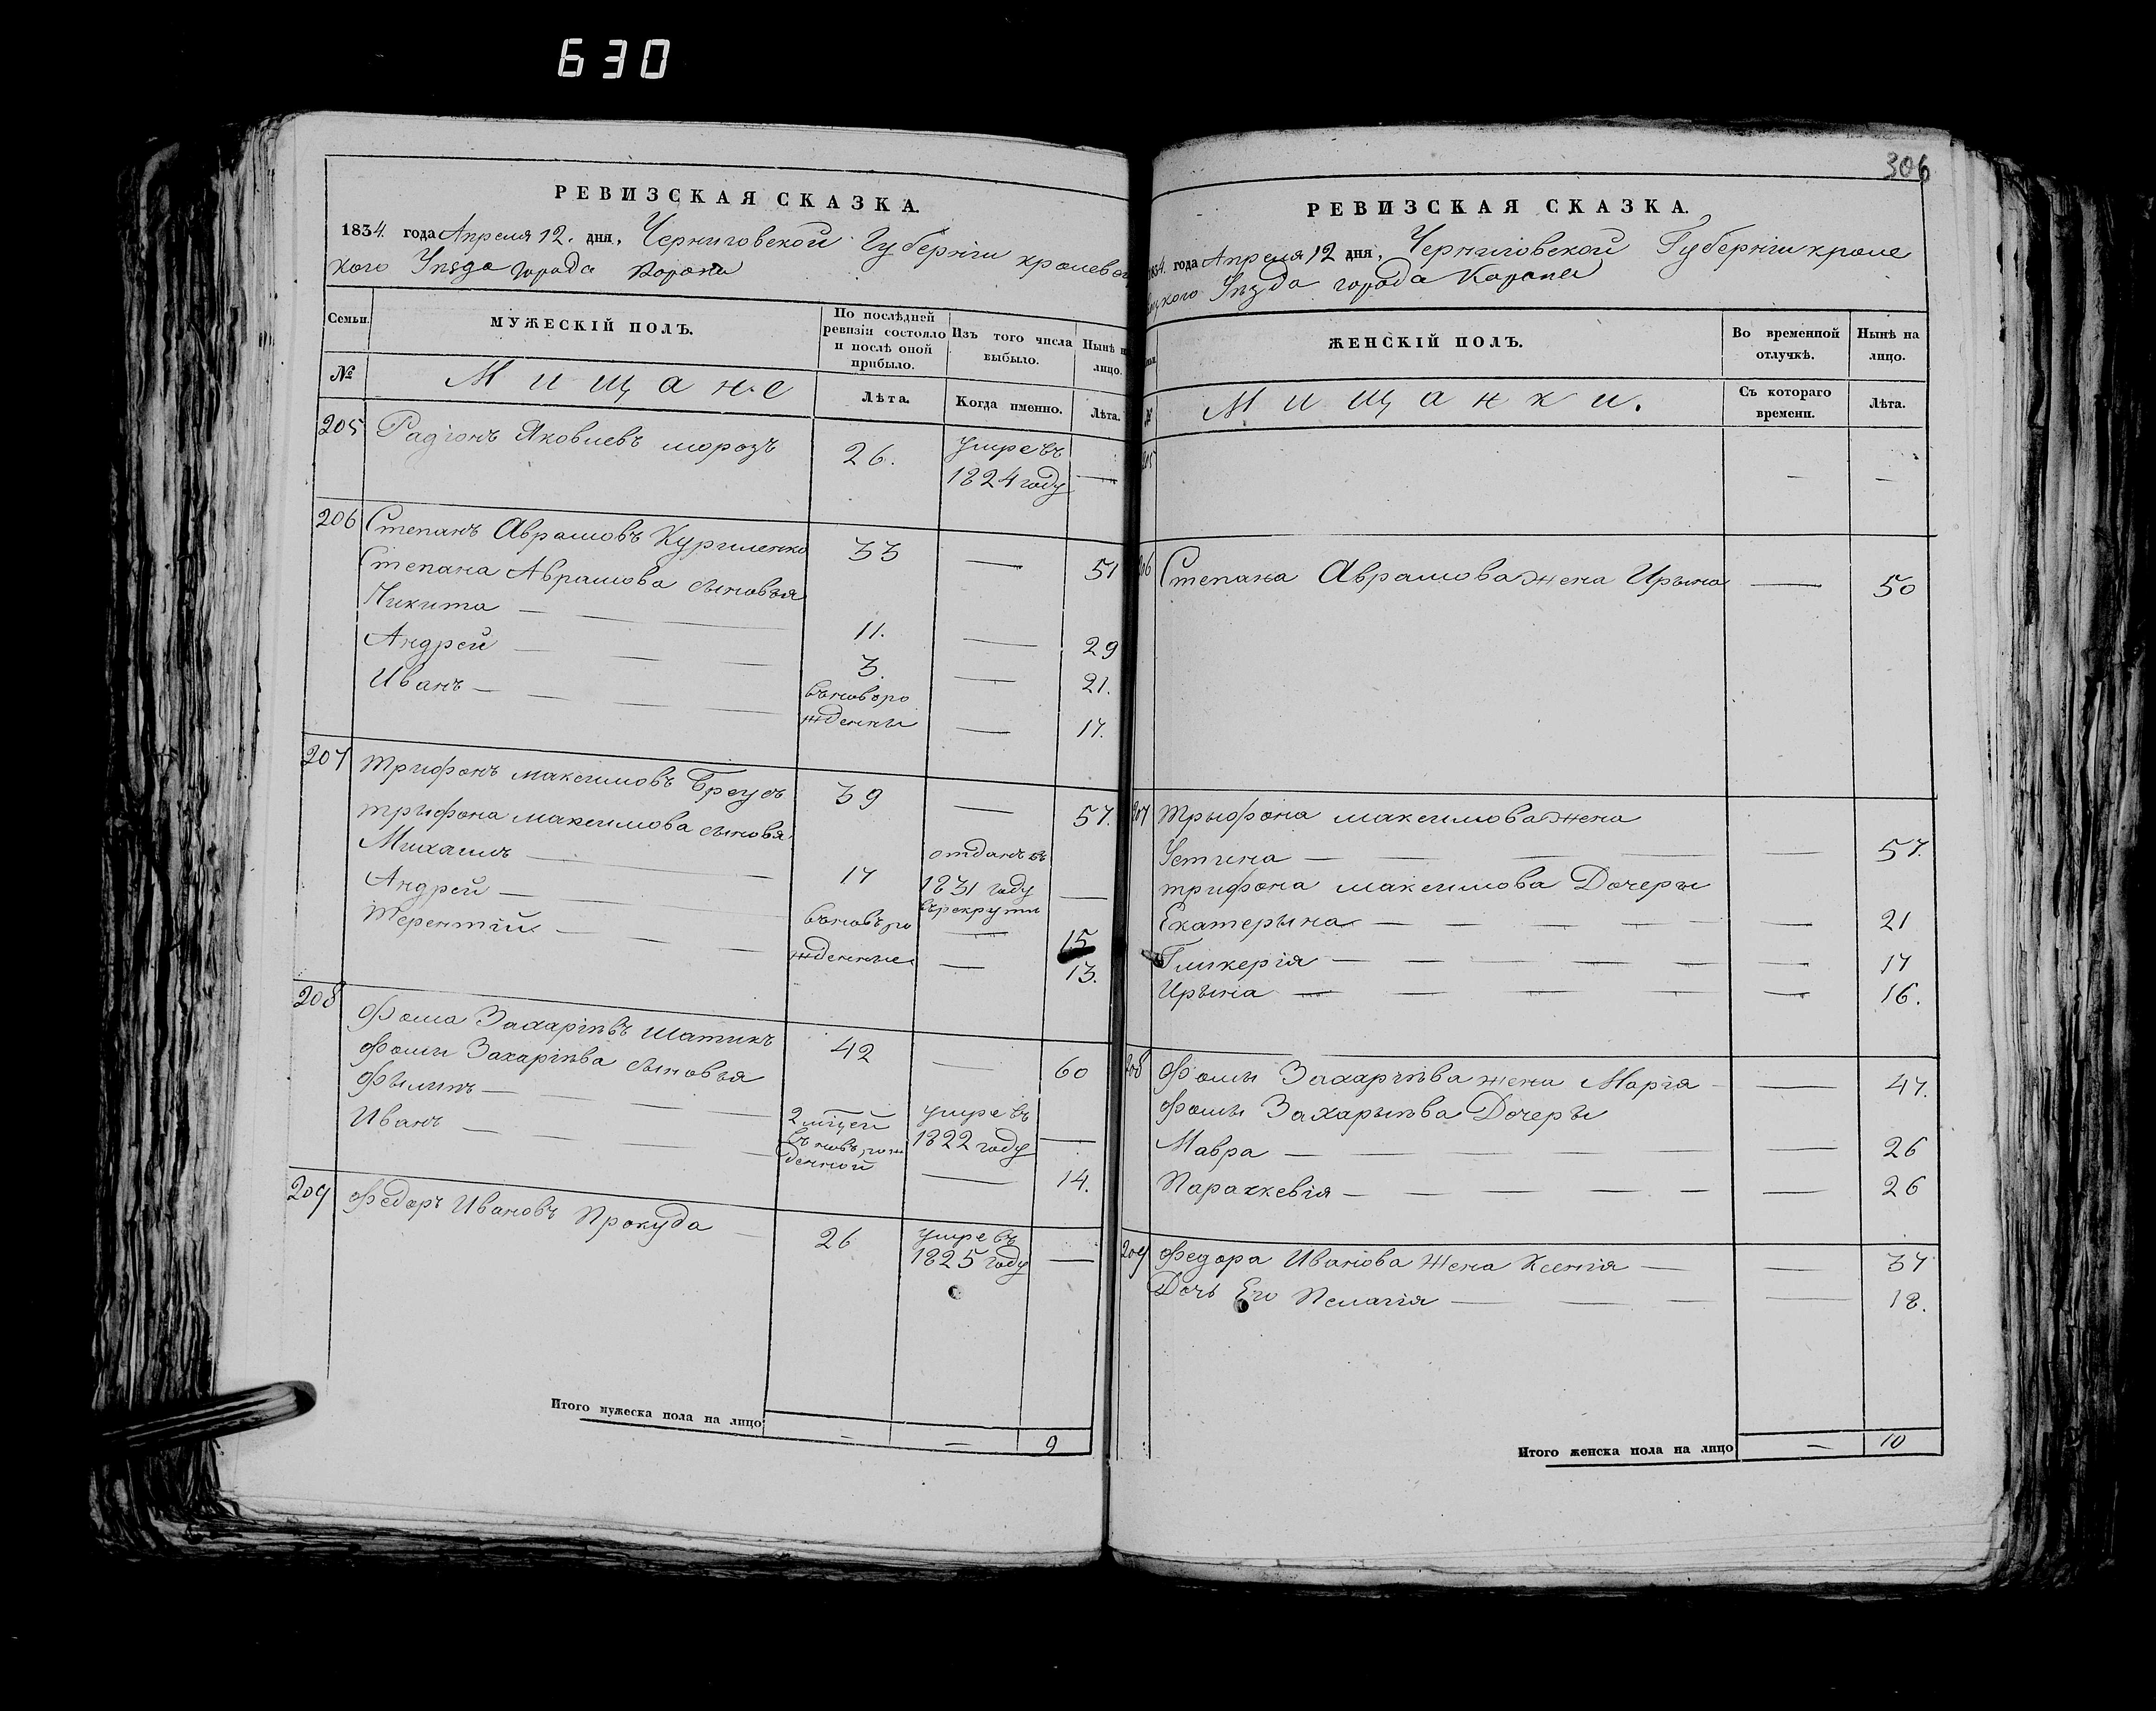 630
РЕВИЗСКАЯ СКАЗКА.
1834. года Апреля 12. дня, Черниговской Губерніи кролевец
кого Уѣзда города Коропа
Семьи.
МУЖЕСКІЙ ПОЛЪ.
По послѣдней ревизіи состояло и послѣ оной прибыло.
Изъ того числа выбыло.
Нынѣ на лицо.
№
Мищане
Лѣта.
Когда именно.
Лѣта.
205 Радіонъ Яковлевъ морозъ 26. умре въ
1824 году —
206 Степанъ Аврамовъ Куриленко 33 — 51
Степана Аврамова сыновья
Никита — 11. — 29
Андрей — 3. — 21.
Иванъ — въновъро
жденны — 17.
207 трифонъ максимовъ Бреусъ 39 — 57.
трифона максимова сыновя
Михаилъ — 17 отданъ въ
1831 году
врекруты —
Андрей — въновъро — 15
Терентій — жденные — 13.
208 Фома Захаріевъ Шатикъ 42 — 60
Фомы Захаріѣва сыновья
Филипъ — 2 мѣцей умре въ
1822 году —
Иванъ — въ новь рож
денной — 14.
209 Федоръ Ивановъ Прокуда — 26 умре въ
1825 году —
Итого мужеска пола на лицо — — 9
306
РЕВИЗСКАЯ СКАЗКА.
1834. года Апреля 12 дня, Черниговской Губерніи кроле
вицкого Уѣзда города Коропа
ЖЕНСКІЙ ПОЛЪ.
Во временной отлучкѣ.
Нынѣ на лицо.
№
Мищанки.
Съ котораго времени.
Лѣта.
205 — —
206 Степана Аврамова жена Ирына — 50
207 Трыфона максимова жена
Устина — — 57.
трифона максимова Дочеры
Екатерына — — 21
Гликерія — — 17
Ирына — — 16.
208 Фомы Захаріѣва жена Марія — 47.
Фомы Захарыѣва Дочеры
Мавра — — 26
Параскевія — — 26
209 Федора Иванова Жена Ксенія — — 37
Дочь Его Пелагія — — 18.
Итого женска пола на лицо — 10